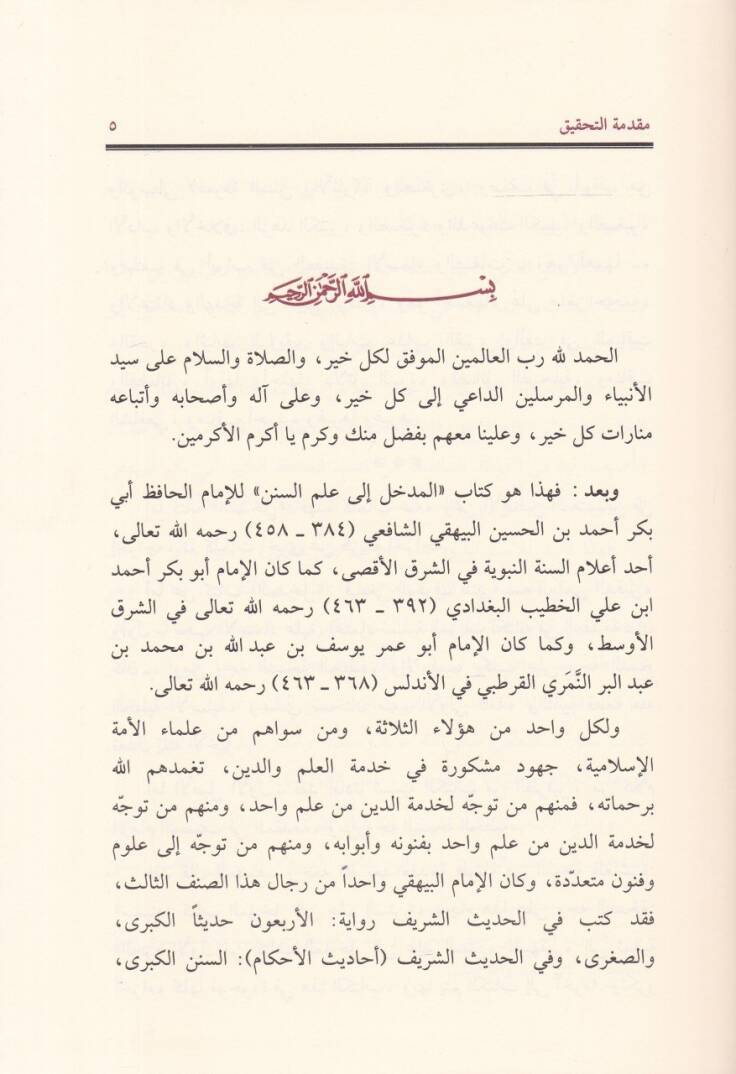 مقدمة التحقيق ٥
بسم الله الرحمن الرحيم
الحمد لله رب العالمين الموفق لكل خير، والصلاة والسلام على سيد
الأنبياء والمرسلين الداعي إلى كل خير، وعلى آله وأصحابه وأتباعه
منارات كل خير، وعلينا معهم بفضل منك وكرم يا أكرم الأكرمين.
وبعد: فهذا هو كتاب «المدخل إلى علم السنن» للإمام الحافظ أبي
بكر أحمد بن الحسين البيهقي الشافعي (٣٨٤ ـ ٤٥٨) رحمه الله تعالى،
أحد أعلام السنة النبوية في الشرق الأقصى، كما كان الإمام أبو بكر أحمد
ابن علي الخطيب البغدادي (٣٩٢ ـ ٤٦٣) رحمه الله تعالى في الشرق
الأوسط، وكما كان الإمام أبو عمر يوسف بن عبد الله بن محمد بن
عبد البر النَّمَري القرطبي في الأندلس (٣٦٨ ـ ٤٦٣) رحمه الله تعالى.
ولكل واحد من هؤلاء الثلاثة، ومن سواهم من علماء الأمة
الإسلامية، جهود مشكورة في خدمة العلم والدين، تغمدهم الله
برحماته، فمنهم من توجّه لخدمة الدين من علم واحد، ومنهم من توجّه
لخدمة الدين من علم واحد بفنونه وأبوابه، ومنهم من توجّه إلى علوم
وفنون متعدّدة، وكان الإمام البيهقي واحداً من رجال هذا الصنف الثالث،
فقد كتب في الحديث الشريف رواية: الأربعون حديثاً الكبرى،
والصغرى، وفي الحديث الشريف (أحاديث الأحكام): السنن الكبرى،